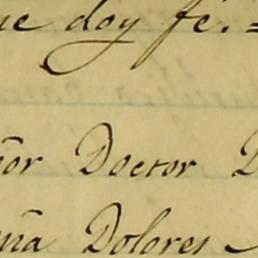 ue doy fé. =
ñor Doctor D
oña Dolores